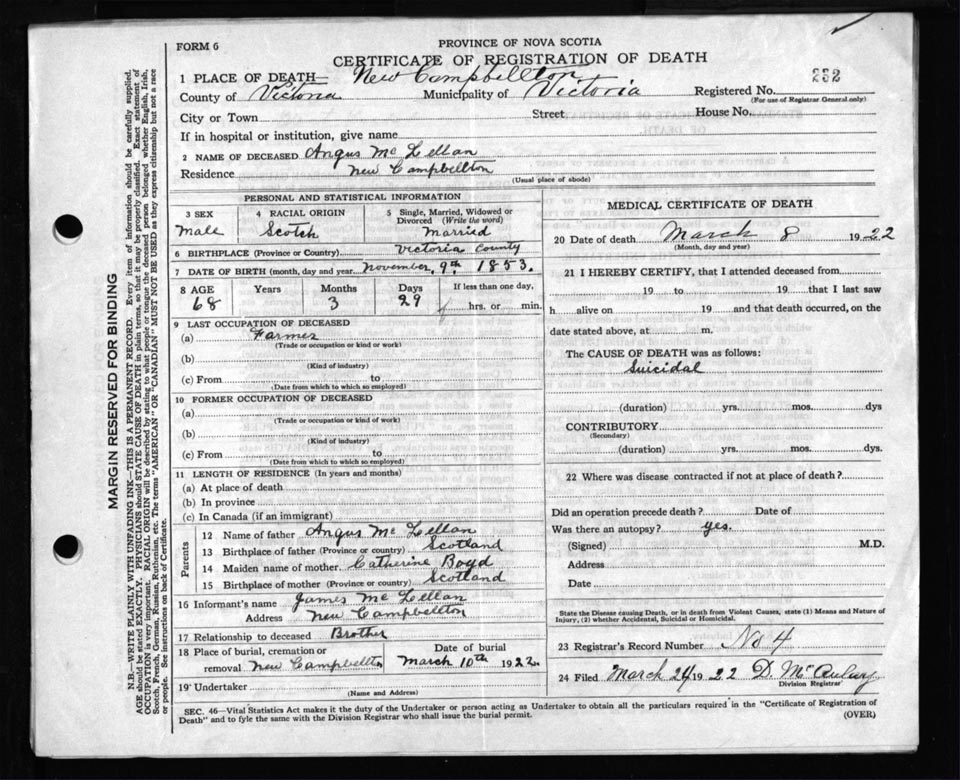 FORM 6
PROVINCE OF NOVA SCOTIA
CERTIFICATE OF REGISTRATION OF DEATH
1 PLACE OF DEATH— New Campbellton
232
County of Victoria Municipality of Victoria Registered No.
(For use of Registrar General only)
City or Town Street House No.
If in hospital or institution, give name
2 NAME OF DECEASED Angus Mc Lellan
Residence New Campbellton
(Usual place of abode)
PERSONAL AND STATISTICAL INFORMATION
3 SEX
Male
4 RACIAL ORIGIN
Scotch
5 Single, Married, Widowed or
Divorced (Write the word)
Married
6 BIRTHPLACE (Province or Country) Victoria County
7 DATE OF BIRTH (month, day and year) November, 9th. 1853.
8 AGE Years Months Days If less than one day,
68 3 29 hrs. or min.
9 LAST OCCUPATION OF DECEASED
(a) Farmer
(Trade or occupation or kind or work)
(b)
(Kind of industry)
(c) From to
(Date from which to which so employed)
10 FORMER OCCUPATION OF DECEASED
(a)
(Trade or occupation or kind of work)
(b)
(Kind of industry)
(c) From to
(Date from which to which so employed)
11 LENGTH OF RESIDENCE (In years and months)
(a) At place of death
(b) In province
(c) In Canada (if an immigrant)
Parents
12 Name of father Angus Mc Lellan
13 Birthplace of father (Province or country) Scotland
14 Maiden name of mother Catherine Boyd
15 Birthplace of mother (Province or country) Scotland
16 Informant's name James Mc Lellan
Address New Campbellton
17 Relationship to deceased Brother
18 Place of burial, cremation or
removal New Campbellton
Date of burial
March 10th 1922
19 Undertaker
(Name and Address)
MEDICAL CERTIFICATE OF DEATH
20 Date of death March 8 1922
(Month, day and year)
21 I HEREBY CERTIFY, that I attended deceased from
19 to 19 that I last saw
h alive on 19 and that death occurred, on the
date stated above, at m.
The CAUSE OF DEATH was as follows:
Suicidal
(duration) yrs. mos. dys
CONTRIBUTORY
(Secondary)
(duration) yrs. mos. dys.
22 Where was disease contracted if not at place of death?
Did an operation precede death? Date of
Was there an autopsy? yes.
(Signed) M.D.
Address
Date
State the Disease causing Death, or in death from Violent Causes, state (1) Means and Nature of
Injury, (2) whether Accidental, Suicidal or Homicidal.
23 Registrar's Record Number No 4
24 Filed March 24 1922 D.
Division Registrar
SEC. 46—Vital Statistics Act makes it the duty of the Undertaker or person acting as Undertaker to obtain all the particulars required in the "Certificate of Registration of
Death" and to fyle the same with the Division Registrar who shall issue the burial permit.
(OVER)
MARGIN RESERVED FOR BINDING
N.B.—WRITE PLAINLY WITH UNFADING INK—THIS IS A PERMANENT RECORD. Every item of information should be carefully supplied.
AGE should be stated EXACTLY. PHYSICIANS should STATE CAUSE OF DEATH in plain terms, so that it may be properly classified. Exact statement of
OCCUPATION is very important. RACIAL ORIGIN will be described by stating to what people or tongue the deceased person belonged whether English, Irish,
Scotch, French, German, Russian, Ruthenian, etc. The terms "AMERICAN" OR "CANADIAN" MUST NOT BE USED as they express citizenship but not a race
or people. See instructions on back of Certificate.